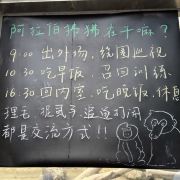 阿拉伯狒狒在干嘛？
9:00 出外场，绕圈巡视
10:30 吃早饭，召回训练
16:30 回内室，吃晚饭，休息
理毛、捉虱子、追逐打闹
都是交流方式！！